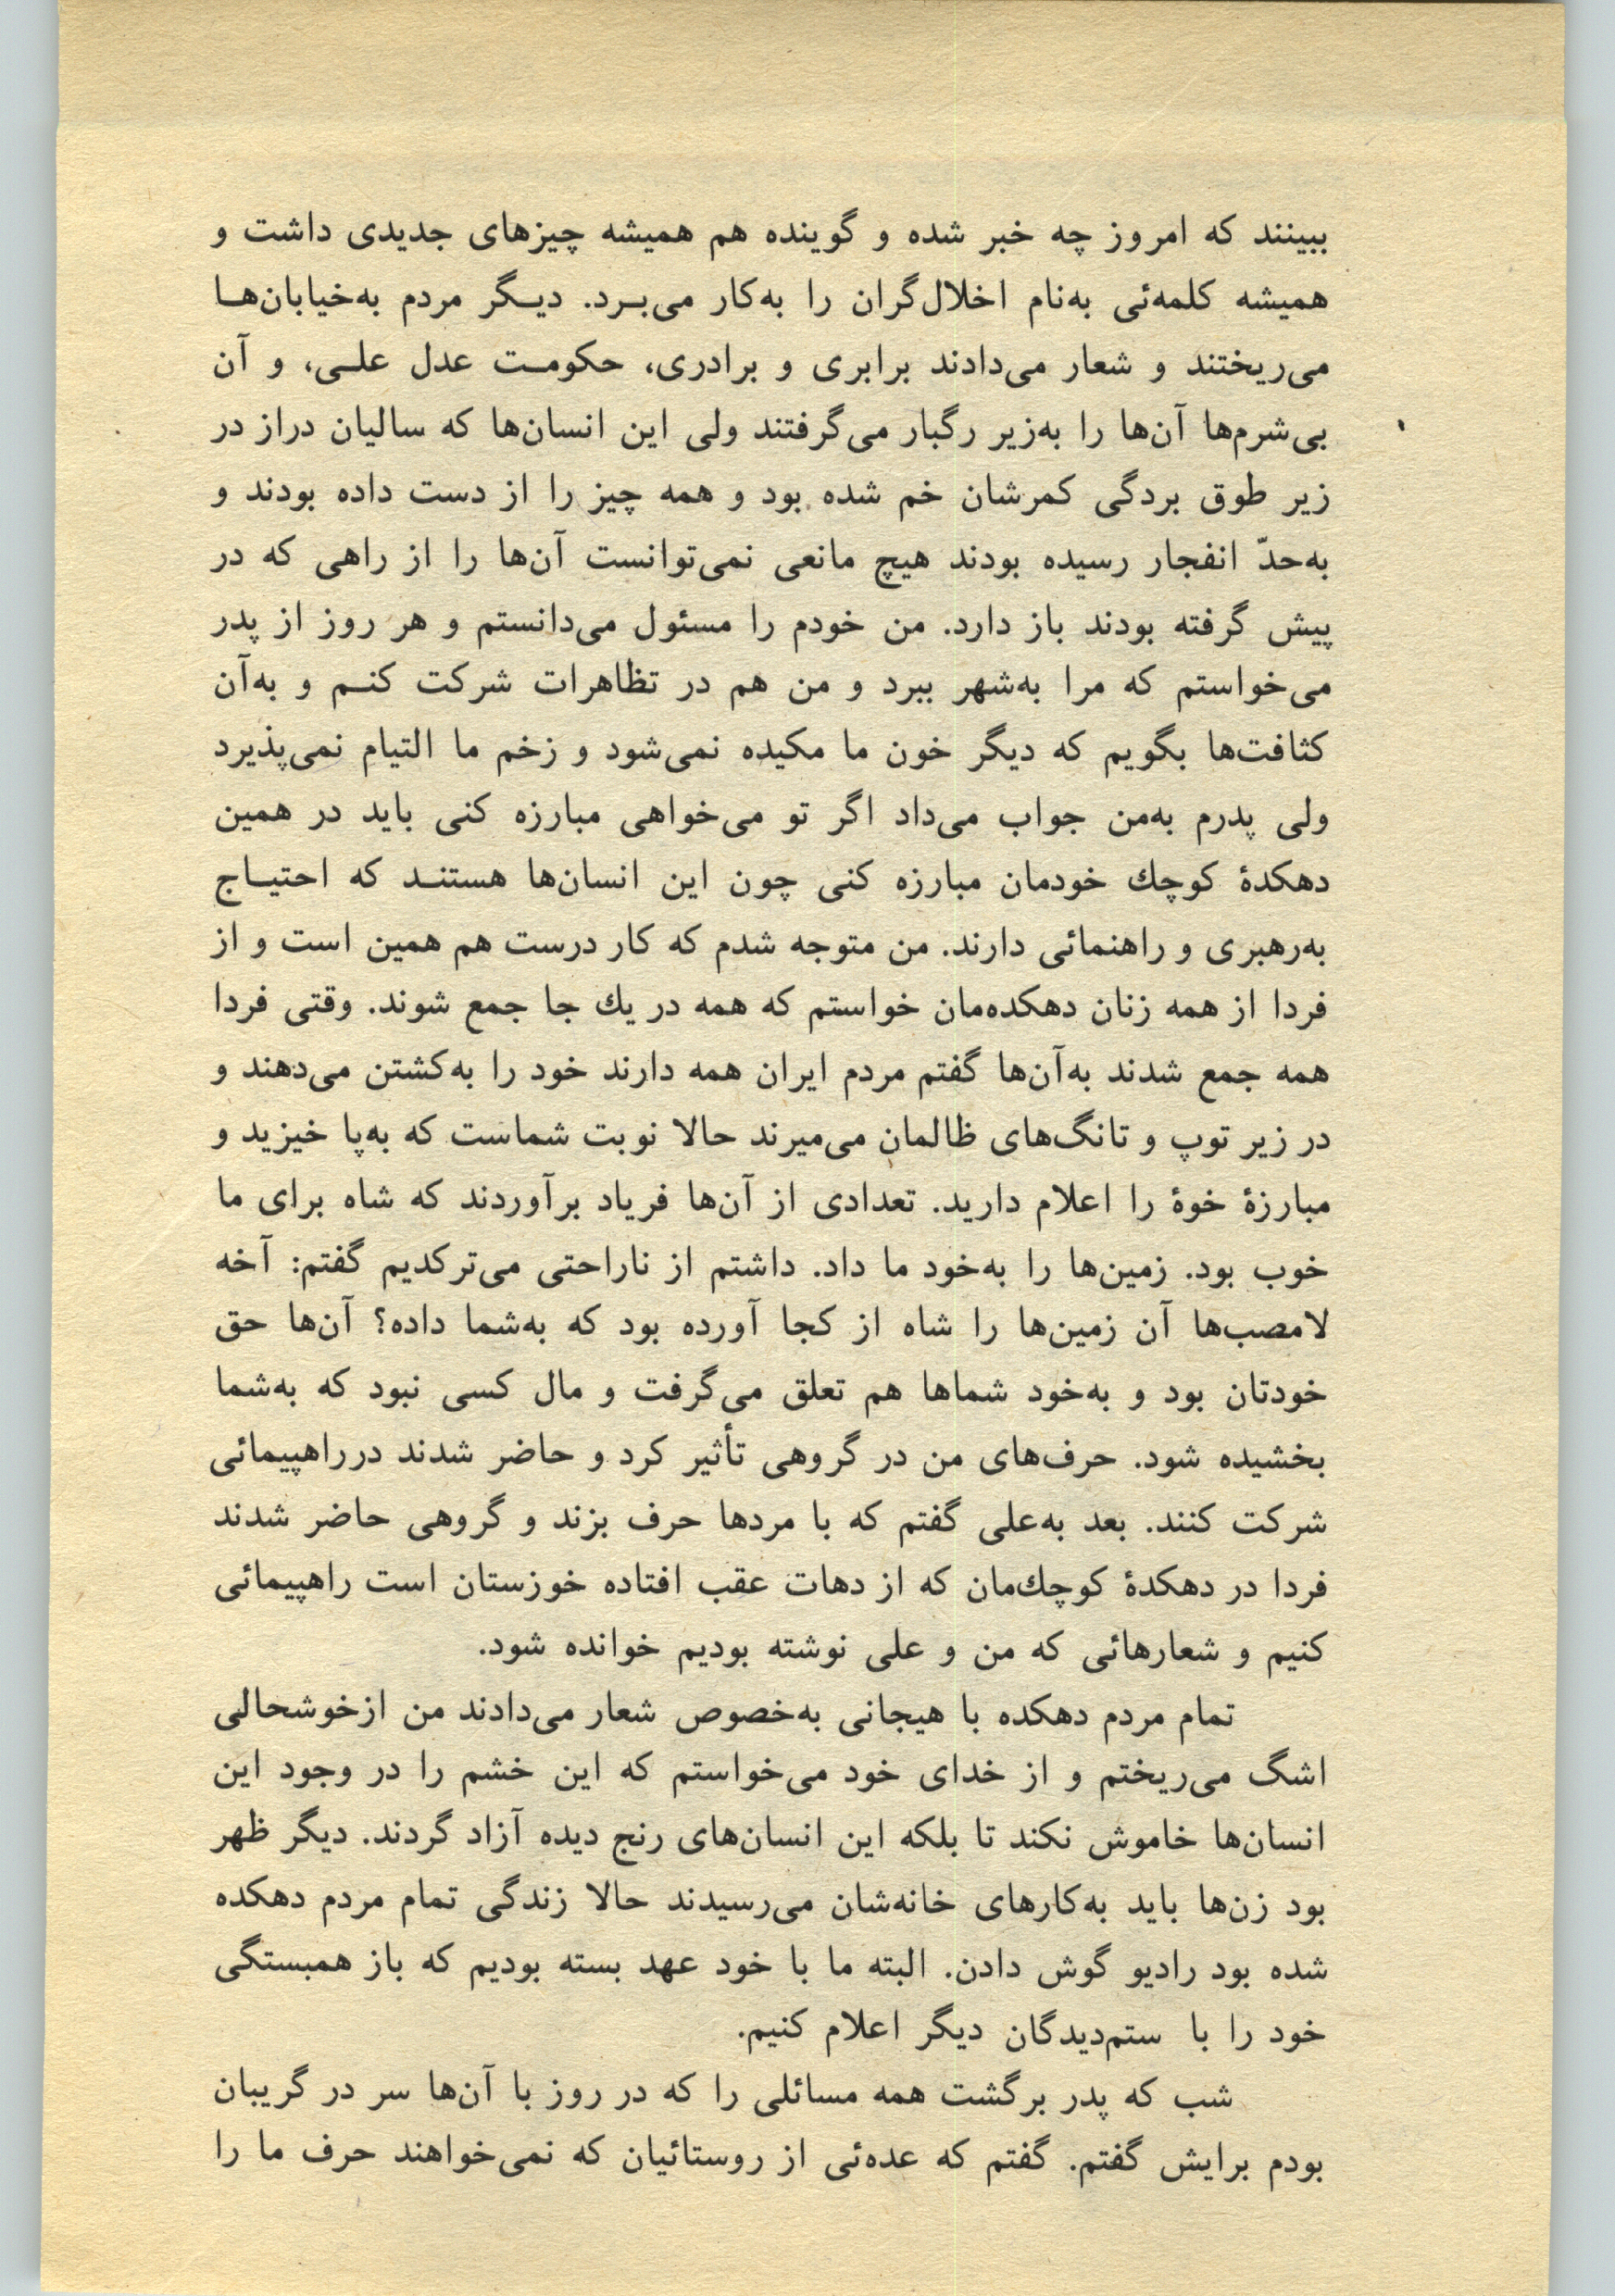 ببینند که امروز چه خبر شده و گوینده هم همیشه چیزهای جدیدی داشت و
همیشه کلمه‌ئی به‌نام اخلال‌گران را به‌کار می‌بـرد. دیـگر مردم به‌خیابان‌هـا
می‌ریختند و شعار می‌دادند برابری و برادری، حکومـت عدل علـی، و آن
بی‌شرم‌ها آن‌ها را به‌زیر رگبار می‌گرفتند ولی این انسان‌ها که سالیان دراز در
زیر طوق بردگی کمرشان خم شده بود و همه چیز را از دست داده بودند و
به‌حدّ انفجار رسیده بودند هیچ مانعی نمی‌توانست آن‌ها را از راهی که در
پیش گرفته بودند باز دارد. من خودم را مسئول می‌دانستم و هر روز از پدر
می‌خواستم که مرا به‌شهر ببرد و من هم در تظاهرات شرکت کنـم و به‌آن
کثافت‌ها بگویم که دیگر خون ما مکیده نمی‌شود و زخم ما التیام نمی‌پذیرد
ولی پدرم به‌من جواب می‌داد اگر تو می‌خواهی مبارزه کنی باید در همین
دهکدهٔ کوچك خودمان مبارزه کنی چون این انسان‌ها هستنـد که احتیـاج
به‌رهبری و راهنمائی دارند. من متوجه شدم که کار درست هم همین است و از
فردا از همه زنان دهکده‌مان خواستم که همه در یك جا جمع شوند. وقتی فردا
همه جمع شدند به‌آن‌ها گفتم مردم ایران همه دارند خود را به‌کشتن می‌دهند و
در زیر توپ و تانگ‌های ظالمان می‌میرند حالا نوبت شماست که به‌پا خیزید و
مبارزهٔ خوهٔ را اعلام دارید. تعدادی از آن‌ها فریاد برآوردند که شاه برای ما
خوب بود. زمین‌ها را به‌خود ما داد. داشتم از ناراحتی می‌ترکدیم گفتم: آخه
لامصب‌ها آن زمین‌ها را شاه از کجا آورده بود که به‌شما داده؟ آن‌ها حق
خودتان بود و به‌خود شماها هم تعلق می‌گرفت و مال کسی نبود که به‌شما
بخشیده شود. حرف‌های من در گروهی تأثیر کرد و حاضر شدند درراهپیمائی
شرکت کنند. بعد به‌علی گفتم که با مردها حرف بزند و گروهی حاضر شدند
فردا در دهکدهٔ کوچك‌مان که از دهات عقب افتاده خوزستان است راهپیمائی
کنیم و شعارهائی که من و علی نوشته بودیم خوانده شود.
تمام مردم دهکده با هیجانی به‌خصوص شعار می‌دادند من ازخوشحالی
اشگ می‌ریختم و از خدای خود می‌خواستم که این خشم را در وجود این
انسان‌ها خاموش نکند تا بلکه این انسان‌های رنج دیده آزاد گردند. دیگر ظهر
بود زن‌ها باید به‌کارهای خانه‌شان می‌رسیدند حالا زندگی تمام مردم دهکده
شده بود رادیو گوش دادن. البته ما با خود عهد بسته بودیم که باز همبستگی
خود را با ستم‌دیدگان دیگر اعلام کنیم.
شب که پدر برگشت همه مسائلی را که در روز با آن‌ها سر در گریبان
بودم برایش گفتم. گفتم که عده‌ئی از روستائیان که نمی‌خواهند حرف ما را